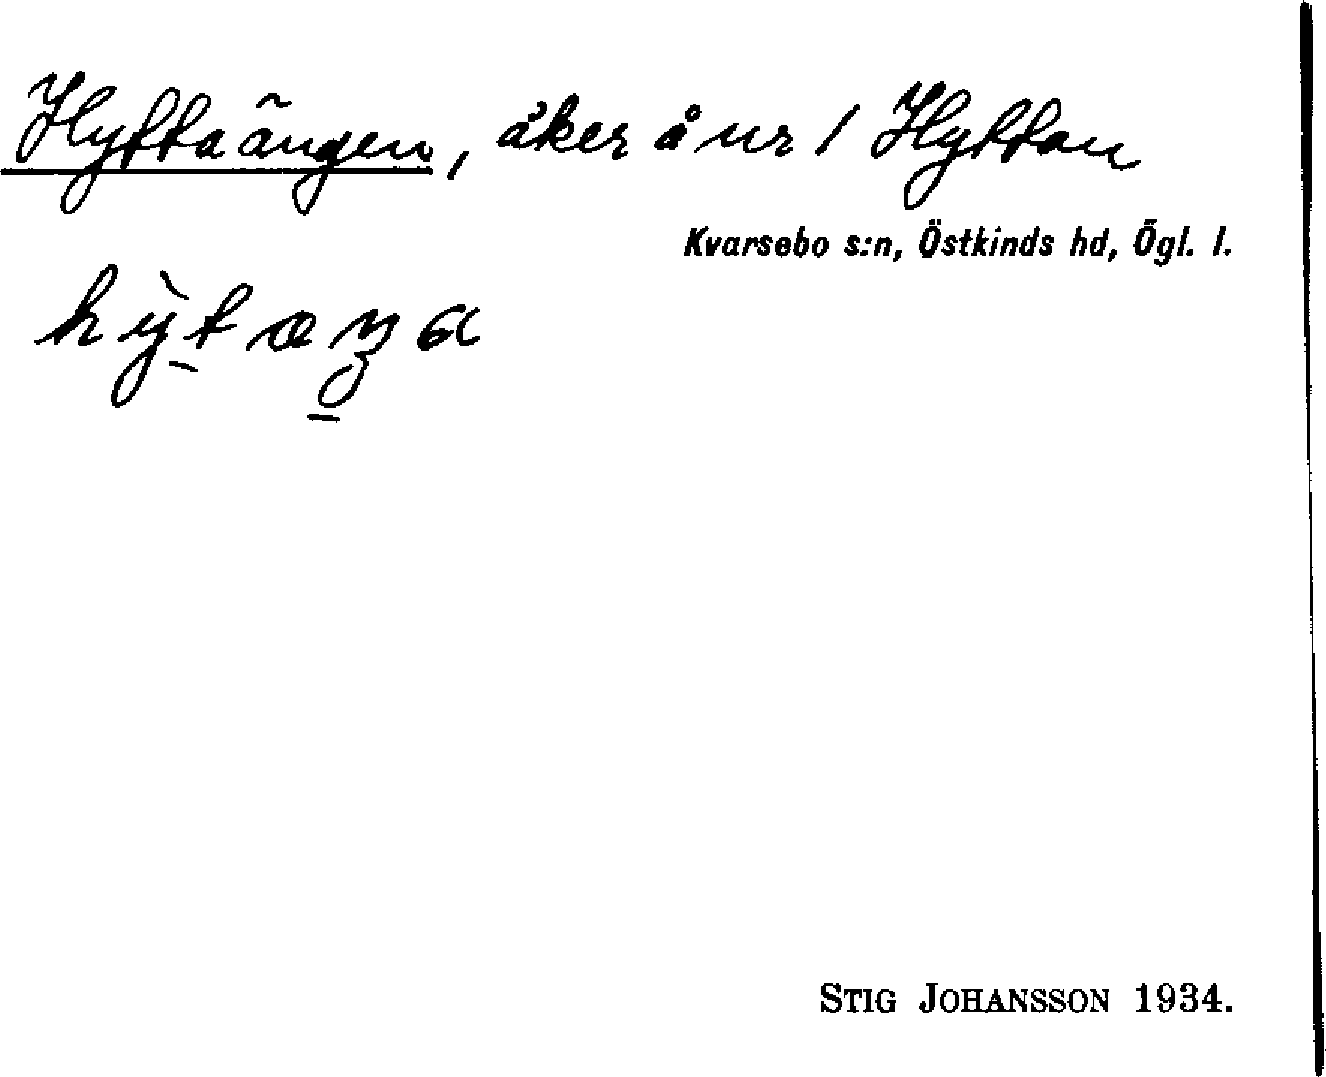 Hyttaängen, åker å nr 1 Hyttan
Kvarsebo s:n, Östkinds hd, Ögl. l.
STIG JOHANSSON 1934.